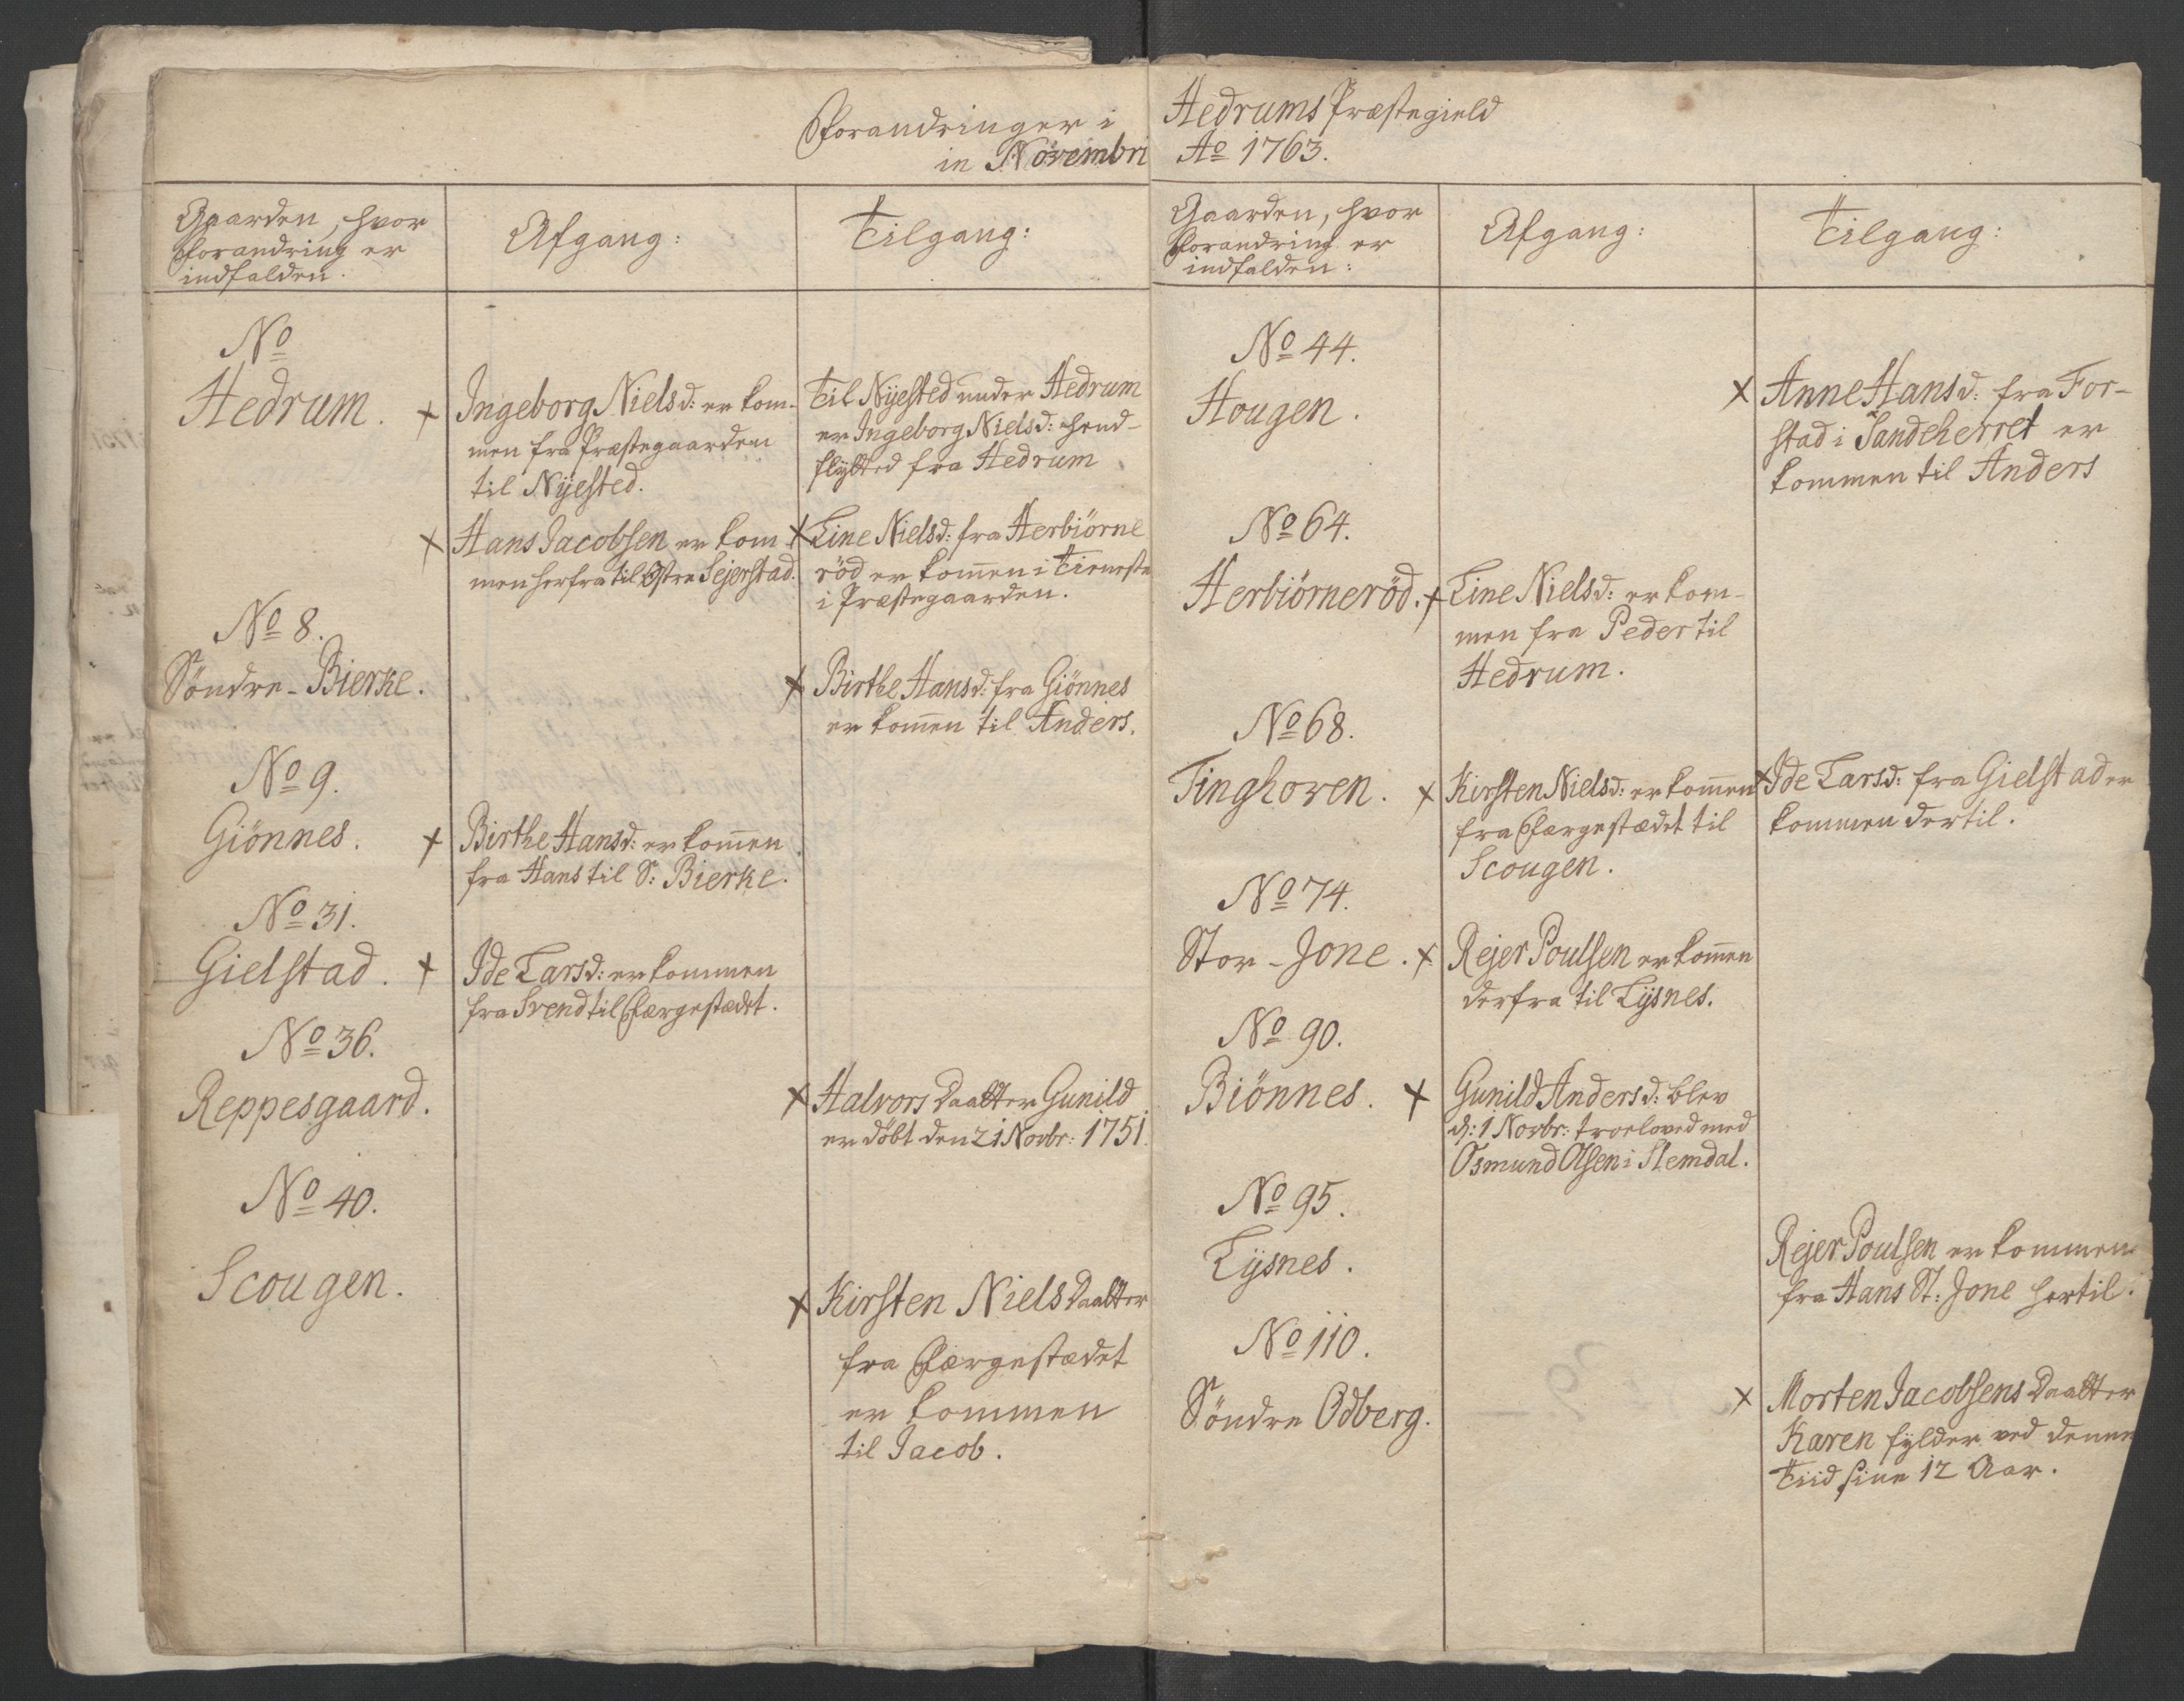 Forandringer i
in Novembri
Gaarden, hvor
Forandring er
indfalden.
Afgang:
Tilgang:
No
Hedrum.
+ Ingeborg Nielsd: er kom-
men fra Præstegaarden
til Nyested.
Til Nyested under Hedrum
er Ingeborg Nielsd: hend-
flytted fra Hedrum
+ Hans Jacobsen er kom
men herfra til Østre Sejerstad.
+ Line Nielsd: fra Herbiörne
röd er kom̄en i Tieneste
i Præstegaarden.
No 8.
Söndre-Bierke.
+ Birthe Hansd: fra Giönnes
er kom̄en til Anders.
No 9.
Giönnes.
+ Birthe Hansd: er kom̄en
fra Hans til S: Bierke.
No 31.
Gielstad.
+ Ide Larsd: er kommen
fra Svend til Færgestædet.
No 36.
Reppesgaard.
+ Halvors Daatter Gunild
er döbt den 21 Novbr: 1751.
No 40.
Scougen.
+ Kirsten Niels Daatter
fra Færgestædet
er kommen
til Jacob.
Hedrums Præstegield
Ao 1763.
Gaarden, hvor
Forandring er
indfalden:
Afgang:
Tilgang:
No 44.
Hougen.
+ Anne Hansd: fra For-
stad i Sandeherret er
kommen til Anders
No 64.
Herbiörneröd.
+ Line Nielsd: er kom-
men fra Peder til
Hedrum.
No 68.
Tinghoven.
+ Kirsten Nielsd: er kom̄en
fra Færgestædet til
Scougen.
+ Ide Larsd: fra Gielstad er
kommen dertil.
No 74.
Stor-Jone.
+ Rejer Poulsen er kom̄en
derfra til Lysnes.
No 90.
Biönnes.
+ Gunild Andersd: blev
d: 1 Novbr: troeloved med
Osmund Olsen i Slemdal.
No 95.
Lysnes.
Rejer Poulsen er kommen
fra Hans St: Jone hertil.
No 110.
Söndre Odberg.
+ Morten Jacobsens Daatter
Karen fylder ved denne
Tiid sine 12 Aar.